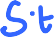 S·t